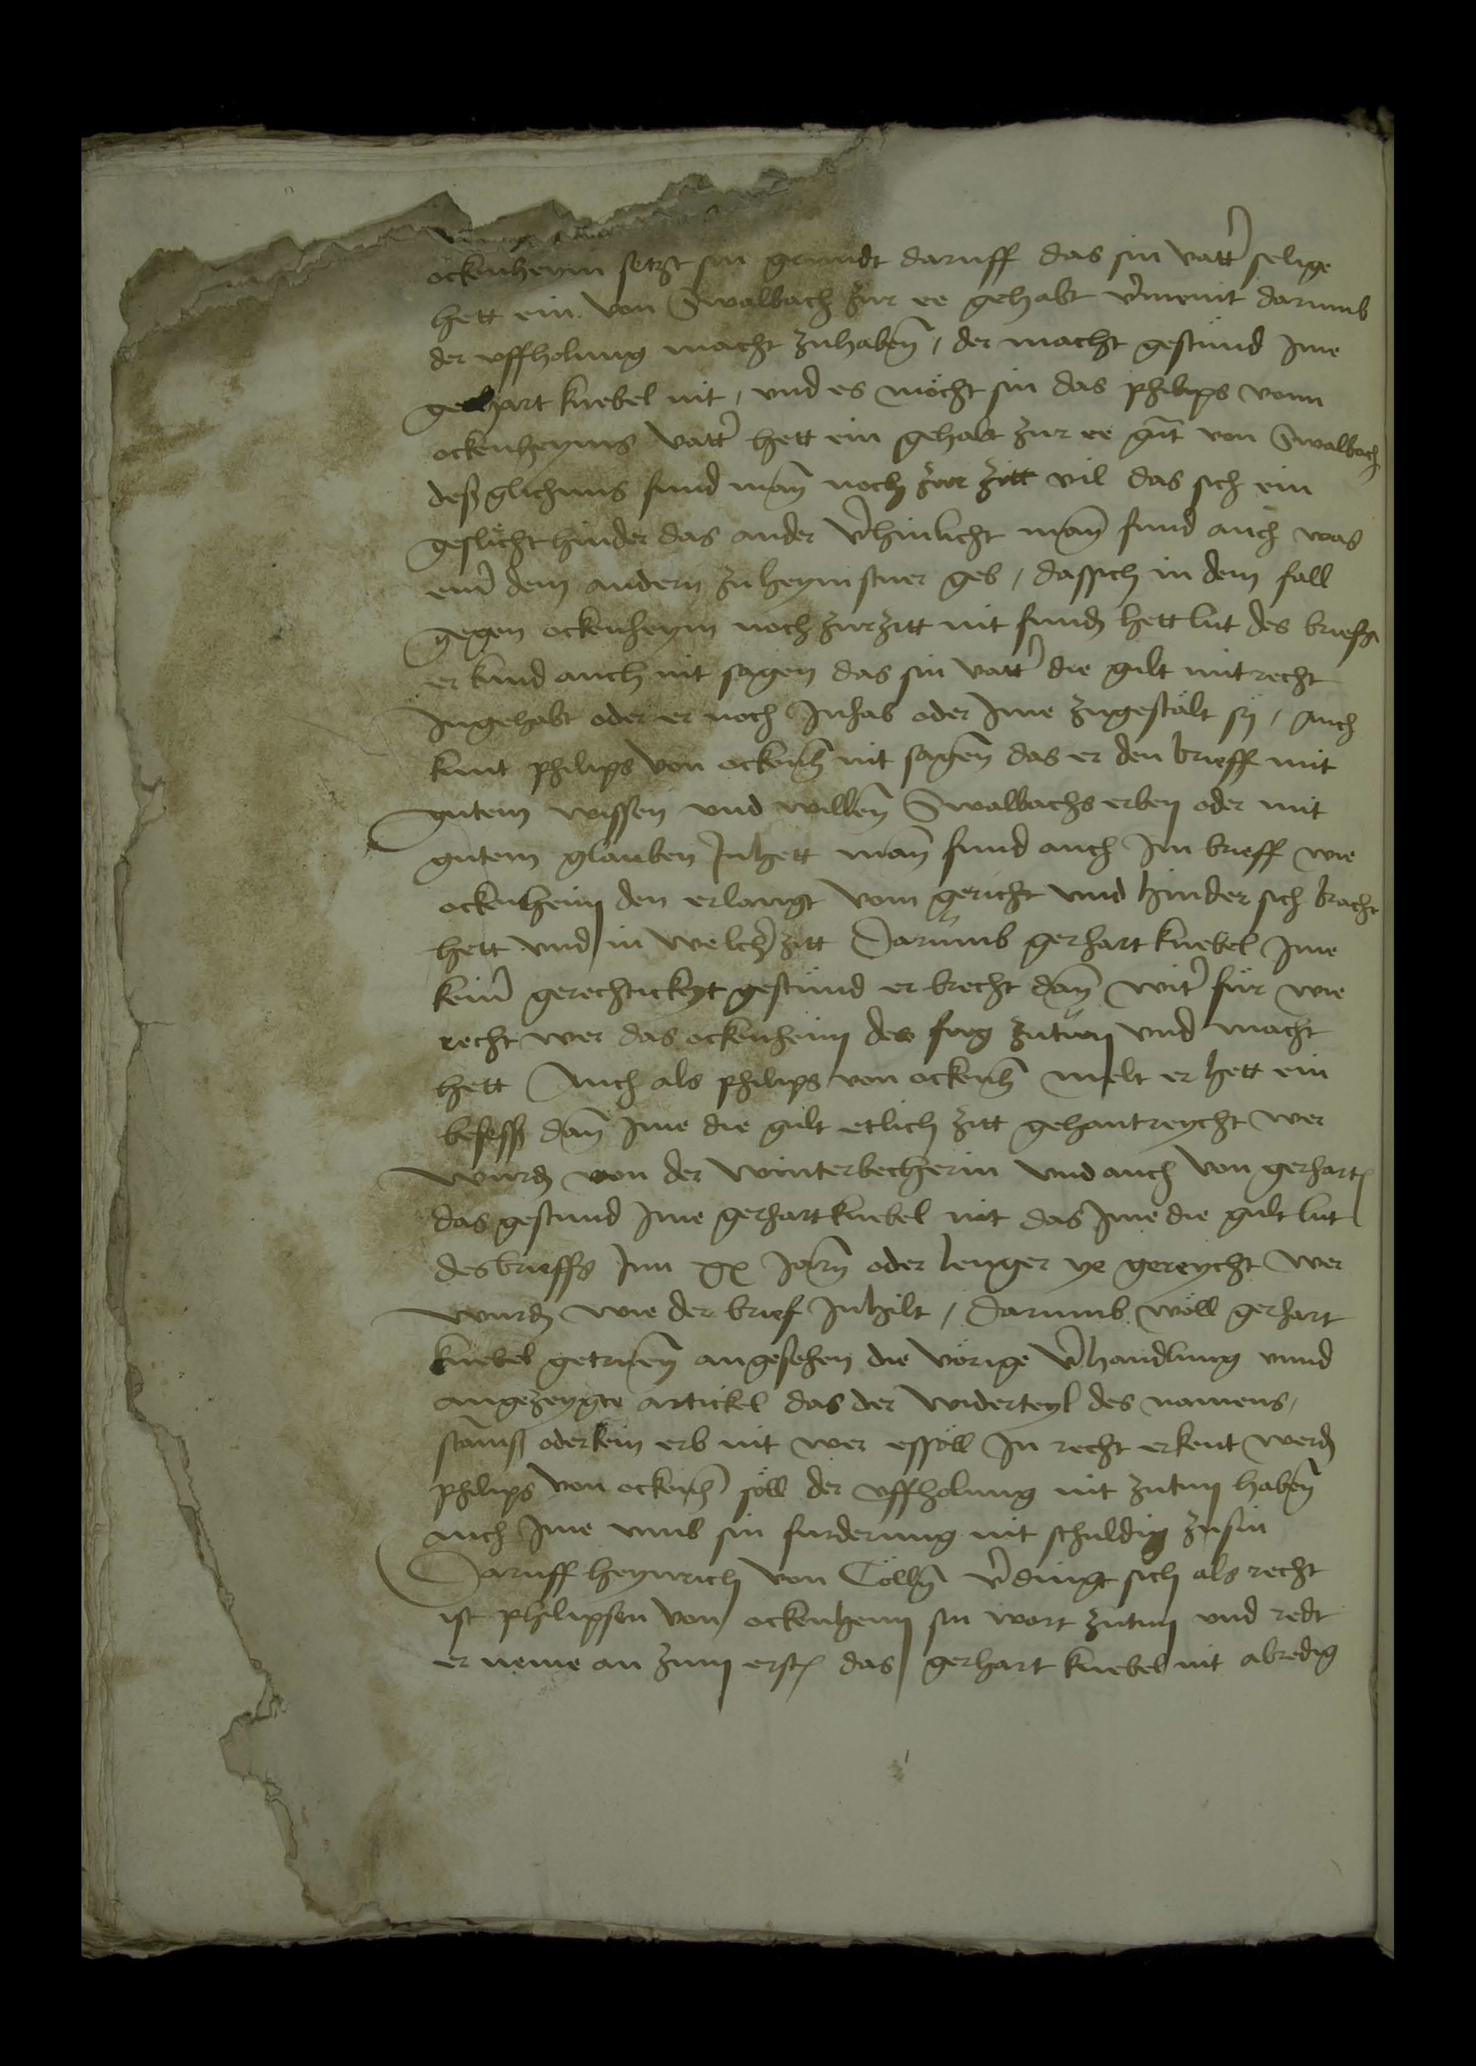 ockenheym setzt sin grundt daruff das sin vatter selige
hett ein von Swalbach zur ee gehabt vermeint darumb
der uffholung macht zuhaben / der macht gestund Ime
gerhart knebel nit / und es möcht sin das philips vonn
ockenheyms vatter hett ein gehabt zur ee gnt von Swalbach
deßglichnus fund man noch zur zitt vil das sich ein
geslicht hinder das ander verhinlicht man fund auch was
einer dem andern zu heymstuer geb / dassich in dem fall
gegen ockenheym noch zurzitt nit funden hett lut des brieffs
er kund auch nit sagen das sin vatter die gilt mit recht
Ingehabt oder er noch Inhab oder Ime zugestalt sy / Auch
kunt philips von ockenheim nit sagen das er den brieff mit
gutem wissen und willen Swalbachs erben oder mit
gutem glauben Inhett man fund auch Im brieff wie
ockenheim den erlangt vom gericht und hinder sich bracht
hett und in welcher zitt Darumb gerhart knebel Ime
keiner gerechtickeyt gestund er brecht dan witer fur wie
recht wer das ockenheim des fug zutun und macht
hett Auch als philips von ockenheim melt er hett ein
beseß dan Ime die gult etlich zitt gehantreycht wer
wurden von der winterbecherin und auch von gerharten
das gestund Ime gerhart knebel nit das Ime die gult lut
des brieffs Inn xx Jarn oder lenger ye gereycht wer
wurden wie der brief Inhilt / Darumb wöll gerhart
knebel getruen angesehen die vorige verhandlung unnd
angezeygte artickel das der widerteyl des namens /
stamß oder kein erb nit wer essöll In recht erkent werden
philips von ockenheim söll der uffholung nit zutun haben
auch Ime umb sin furderung nit schuldig zusin
Daruff heynrich von Cölln verdingt sich als recht
ist philipsen von ockenheim sin wort zutun und redt
er neme an zum ersten das gerhart knebel nit abredig